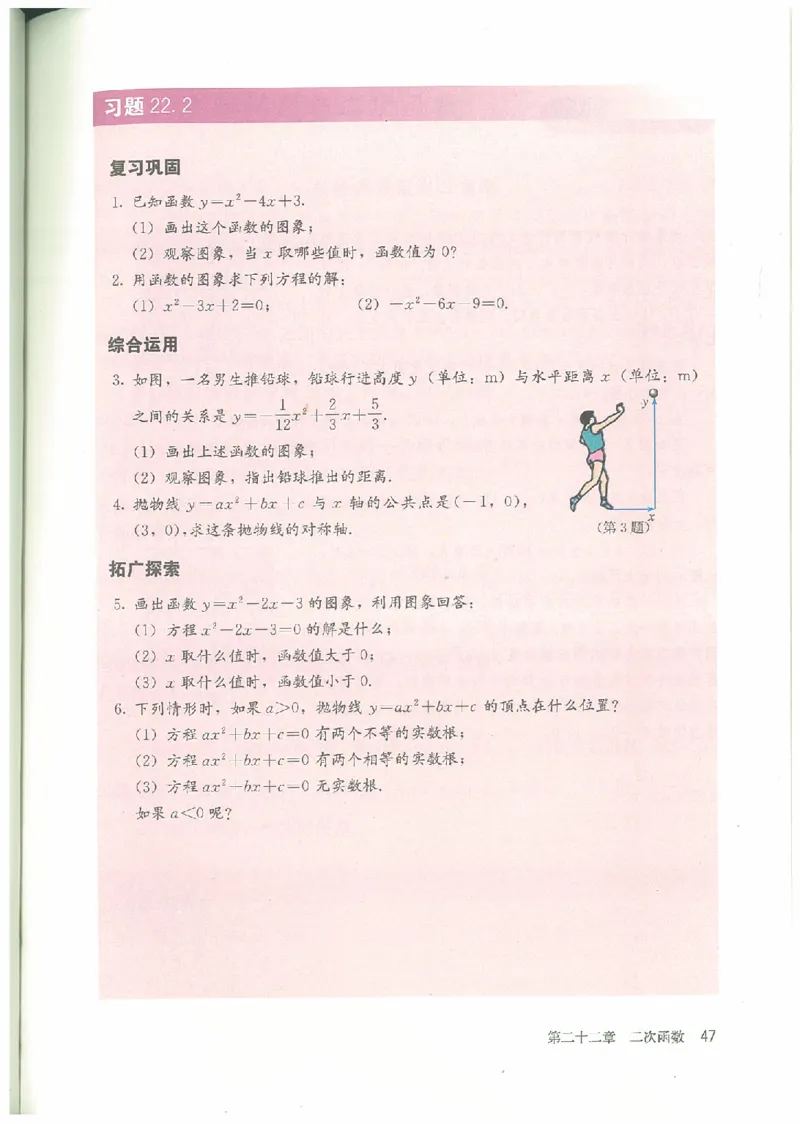 习题 22.2
复习巩固
1. 已知函数 y=x²-4x+3.
(1) 画出这个函数的图象;
(2) 观察图象,当 x 取哪些值时,函数值为 0?
2. 用函数的图象求下列方程的解:
(1) x²-3x+2=0; (2) -x²-6x-9=0.
综合运用
3. 如图,一名男生推铅球,铅球行进高度 y (单位:m) 与水平距离 x (单位:m)
之间的关系是 y=-1/12x²+2/3x+5/3.
(1) 画出上述函数的图象;
(2) 观察图象,指出铅球推出的距离.
y
4. 抛物线 y=ax²+bx+c 与 x 轴的公共点是(-1,0),
(3,0),求这条抛物线的对称轴.
x
(第 3 题)
拓广探索
5. 画出函数 y=x²-2x-3 的图象,利用图象回答:
(1) 方程 x²-2x-3=0 的解是什么;
(2) x 取什么值时,函数值大于 0;
(3) x 取什么值时,函数值小于 0.
6. 下列情形时,如果 a>0,抛物线 y=ax²+bx+c 的顶点在什么位置?
(1) 方程 ax²+bx+c=0 有两个不等的实数根;
(2) 方程 ax²+bx+c=0 有两个相等的实数根;
(3) 方程 ax²+bx+c=0 无实数根.
如果 a<0 呢?
第二十二章 二次函数 47